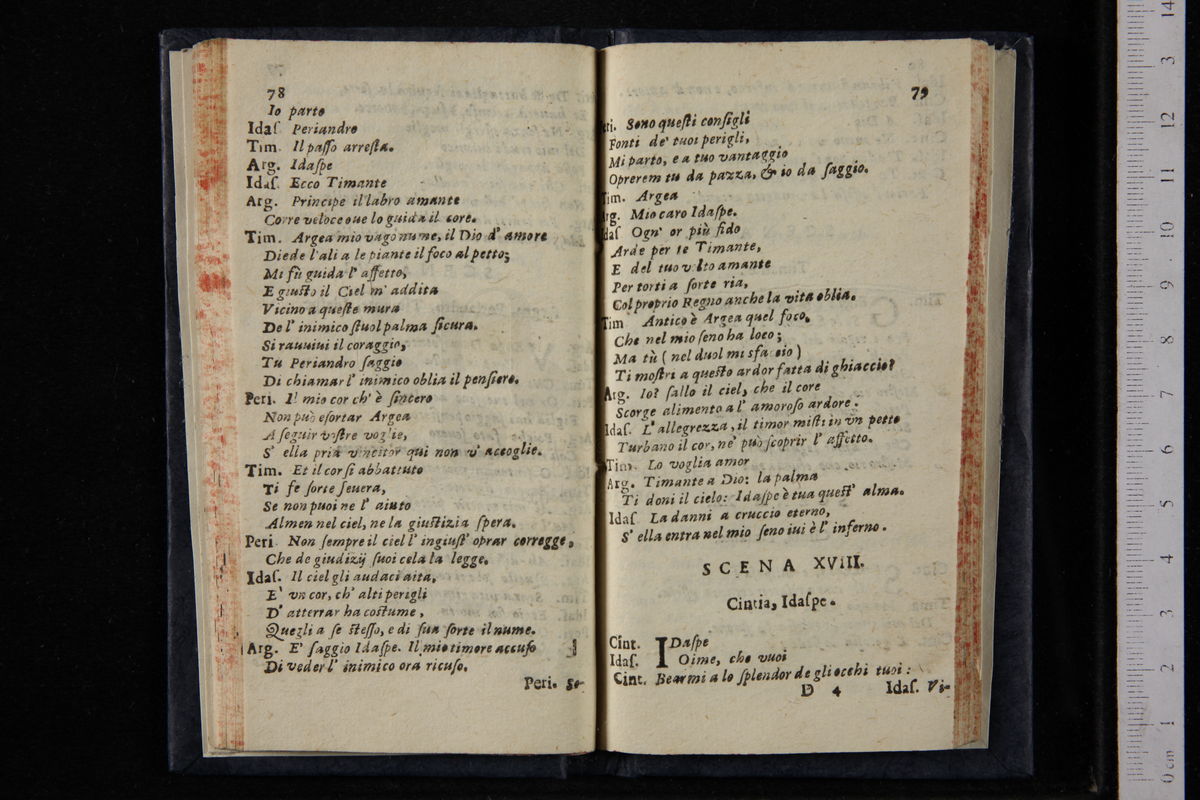 78
Io parto
Idaſ. Periandro
Tim. Il paſſo arreſta.
Arg. Idaſpe
Idaſ. Ecco Timante
Arg. Principe il labro amante
Corre veloce oue lo guida il core.
Tim. Argea mio vago nume, il Dio d' amore
Diede l'ali a le piante il foco al petto;
Mi fù guida l' affetto,
E giuſto il Ciel m' addita
Vicino a queſte mura
De l' inimico ſtuol palma ſicura.
Si rauuiui il coraggio,
Tu Periandro ſaggio
Di chiamar l' inimico oblia il penſiero.
Peri. Il mio cor ch' è ſincero
Non può eſortar Argea
A ſeguir voſtre voglie,
S' ella pria vincitor qui non v' accoglie.
Tim. Et il cor ſi abbattuto
Ti fe ſorte ſeuera,
Se non puoi ne l' aiuto
Almen nel ciel, ne la giuſtizia ſpera.
Peri. Non ſempre il ciel l' ingiuſt' oprar corregge,
Che de giudizÿ ſuoi cela la legge.
Idaſ. Il ciel gli audaci aita,
E' vn cor, ch' alti perigli
D' atterrar ha coſtume,
Quegli a ſe ſteſſo, e di ſua ſorte il nume.
Arg. E' ſaggio Idaſpe. Il mio timore accuſo
Di veder l' inimico ora ricuſo.
Peri. So-
79
Peri. Sono queſti conſigli
Fonti de' tuoi perigli,
Mi parto, e a tuo vantaggio
Oprerem tu da pazza, & io da ſaggio.
Tim. Argea
Arg. Mio caro Idaſpe.
Idaſ Ogn' or più fido
Arde per te Timante,
E del tuo volto amante
Per torti a ſorte ria,
Col proprio Regno anche la vita oblia.
Tim Antico è Argea quel foco,
Che nel mio ſeno ha loco;
Ma tù ( nel duol mi sfaccio )
Ti moſtri a queſto ardor fatta di ghiaccio?
Arg. Io? ſallo il ciel, che il core
Scorge alimento a l' amoroſo ardore.
Idaſ. L' allegrezza, il timor miſti in vn petto
Turbano il cor, ne' può ſcoprir l' affetto.
Tim. Lo voglia amor
Arg. Timante a Dio: la palma
Ti doni il cielo: Idaſpe è tua queſt' alma.
Idaſ La danni a cruccio eterno,
S' ella entra nel mio ſeno iui è l' inferno.
SCENA XVIII.
Cintia, Idaſpe.
Cint. IDaſpe
Idaſ. Oime, che vuoi
Cint. Bearmi a lo ſplendor de gli occhi tuoi:
D 4 Idaſ. Vi-